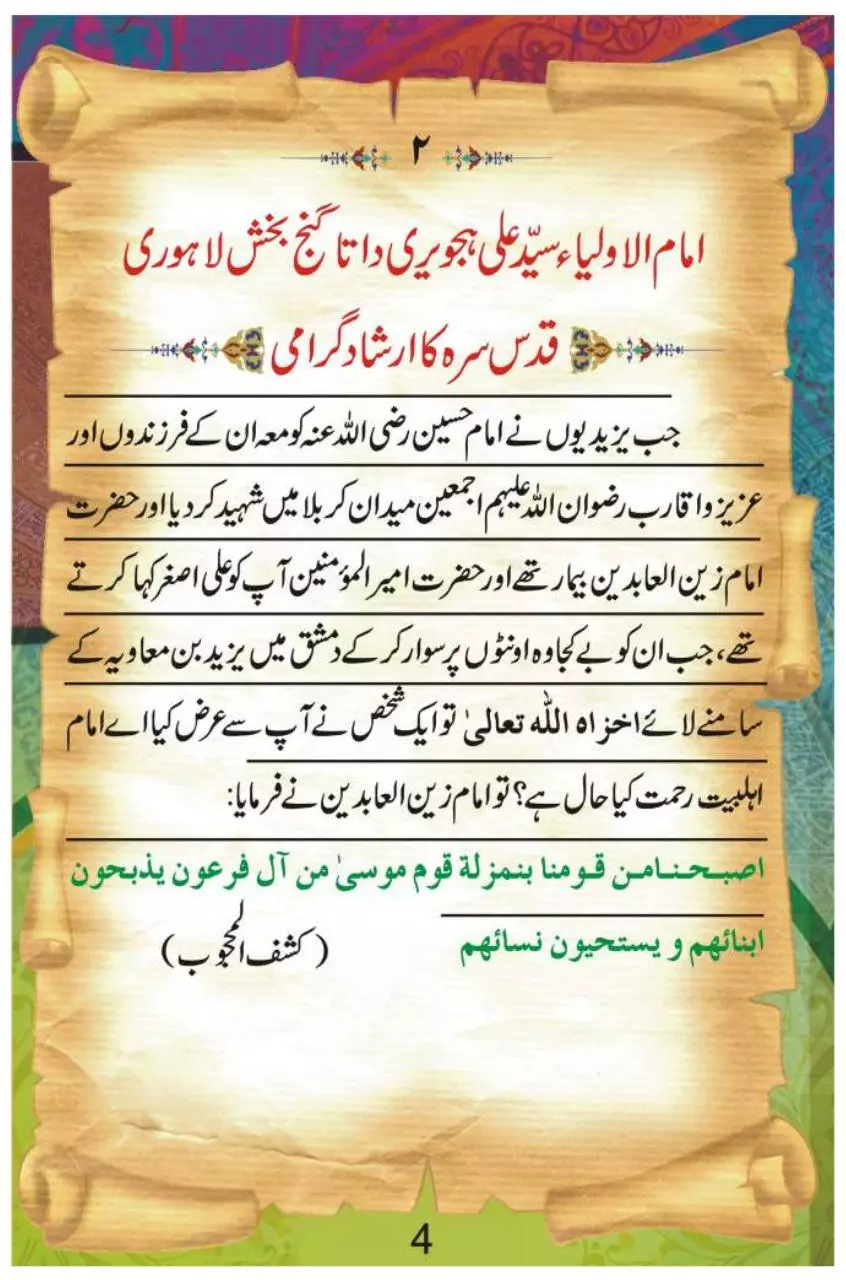 ۲
امام الاولیاء سیّد علی ہجویری داتا گنج بخش لاہوری
قدس سرہ کا ارشاد گرامی
جب یزیدیوں نے امام حسین رضی اللہ عنہ کو معہ ان کے فرزندوں اور
عزیز و اقارب رضوان اللہ علیہم اجمعین میدان کربلا میں شہید کر دیا اور حضرت
امام زین العابدین بیمار تھے اور حضرت امیر المؤمنین آپ کو علی اصغر کہا کرتے
تھے، جب ان کو بے کجاوہ اونٹوں پر سوار کر کے دمشق میں یزید بن معاویہ کے
سامنے لائے اخزاہ اللہ تعالیٰ تو ایک شخص نے آپ سے عرض کیا اے امام
اہلبیت رحمت کیا حال ہے؟ تو امام زین العابدین نے فرمایا:
اصبحنا من قومنا بنمزلة قوم موسیٰ من آل فرعون یذبحون
ابنائهم و یستحیون نسائهم (کشف المحجوب)
4